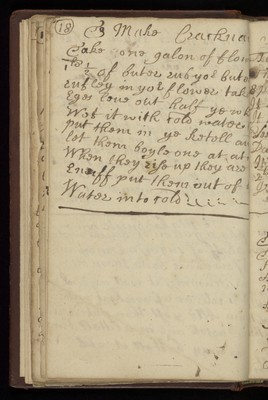 (18) To Make Cracknal
Take one galon of flow
1 lb ½ of buter rub yor bute
in yor flower tak
Eges leve out half ye wh
Wet it with cold water
put them in ye ketell an
let them boyle one at at
When they rise up they are
Enuff put them out of
Water into cold